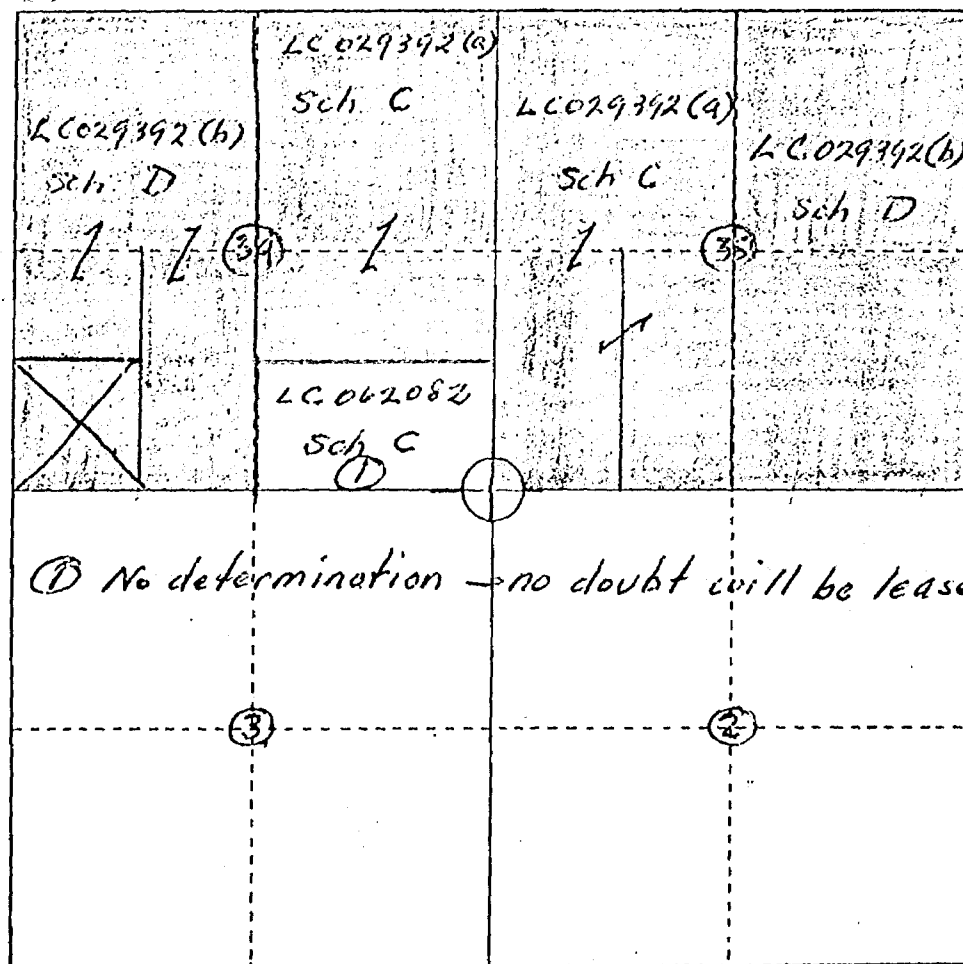 LC029392(b)
Sch. D
LC029392(a)
Sch C
LC029392(a)
Sch C
LC029392(b)
Sch D
34
35
LC062082
Sch C
①
① No determination – no doubt will be lease
3
2